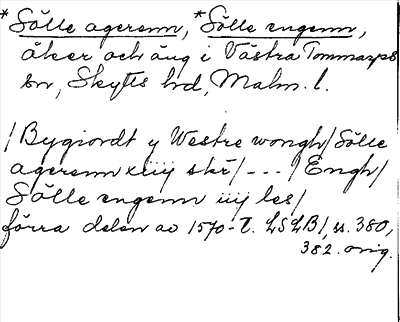 *Sölle agerenn, *Sölle engenn,
åker och äng i Västra Tommarps
sn, Skytts hd, Malm. l.
/Bygiordt y Westre wongh/Sölle
agerenn xiiij skr/---/Engh/
Sölle engenn iiij les/
förra delen av 1570-t. LSLB/, s. 380,
382. orig.